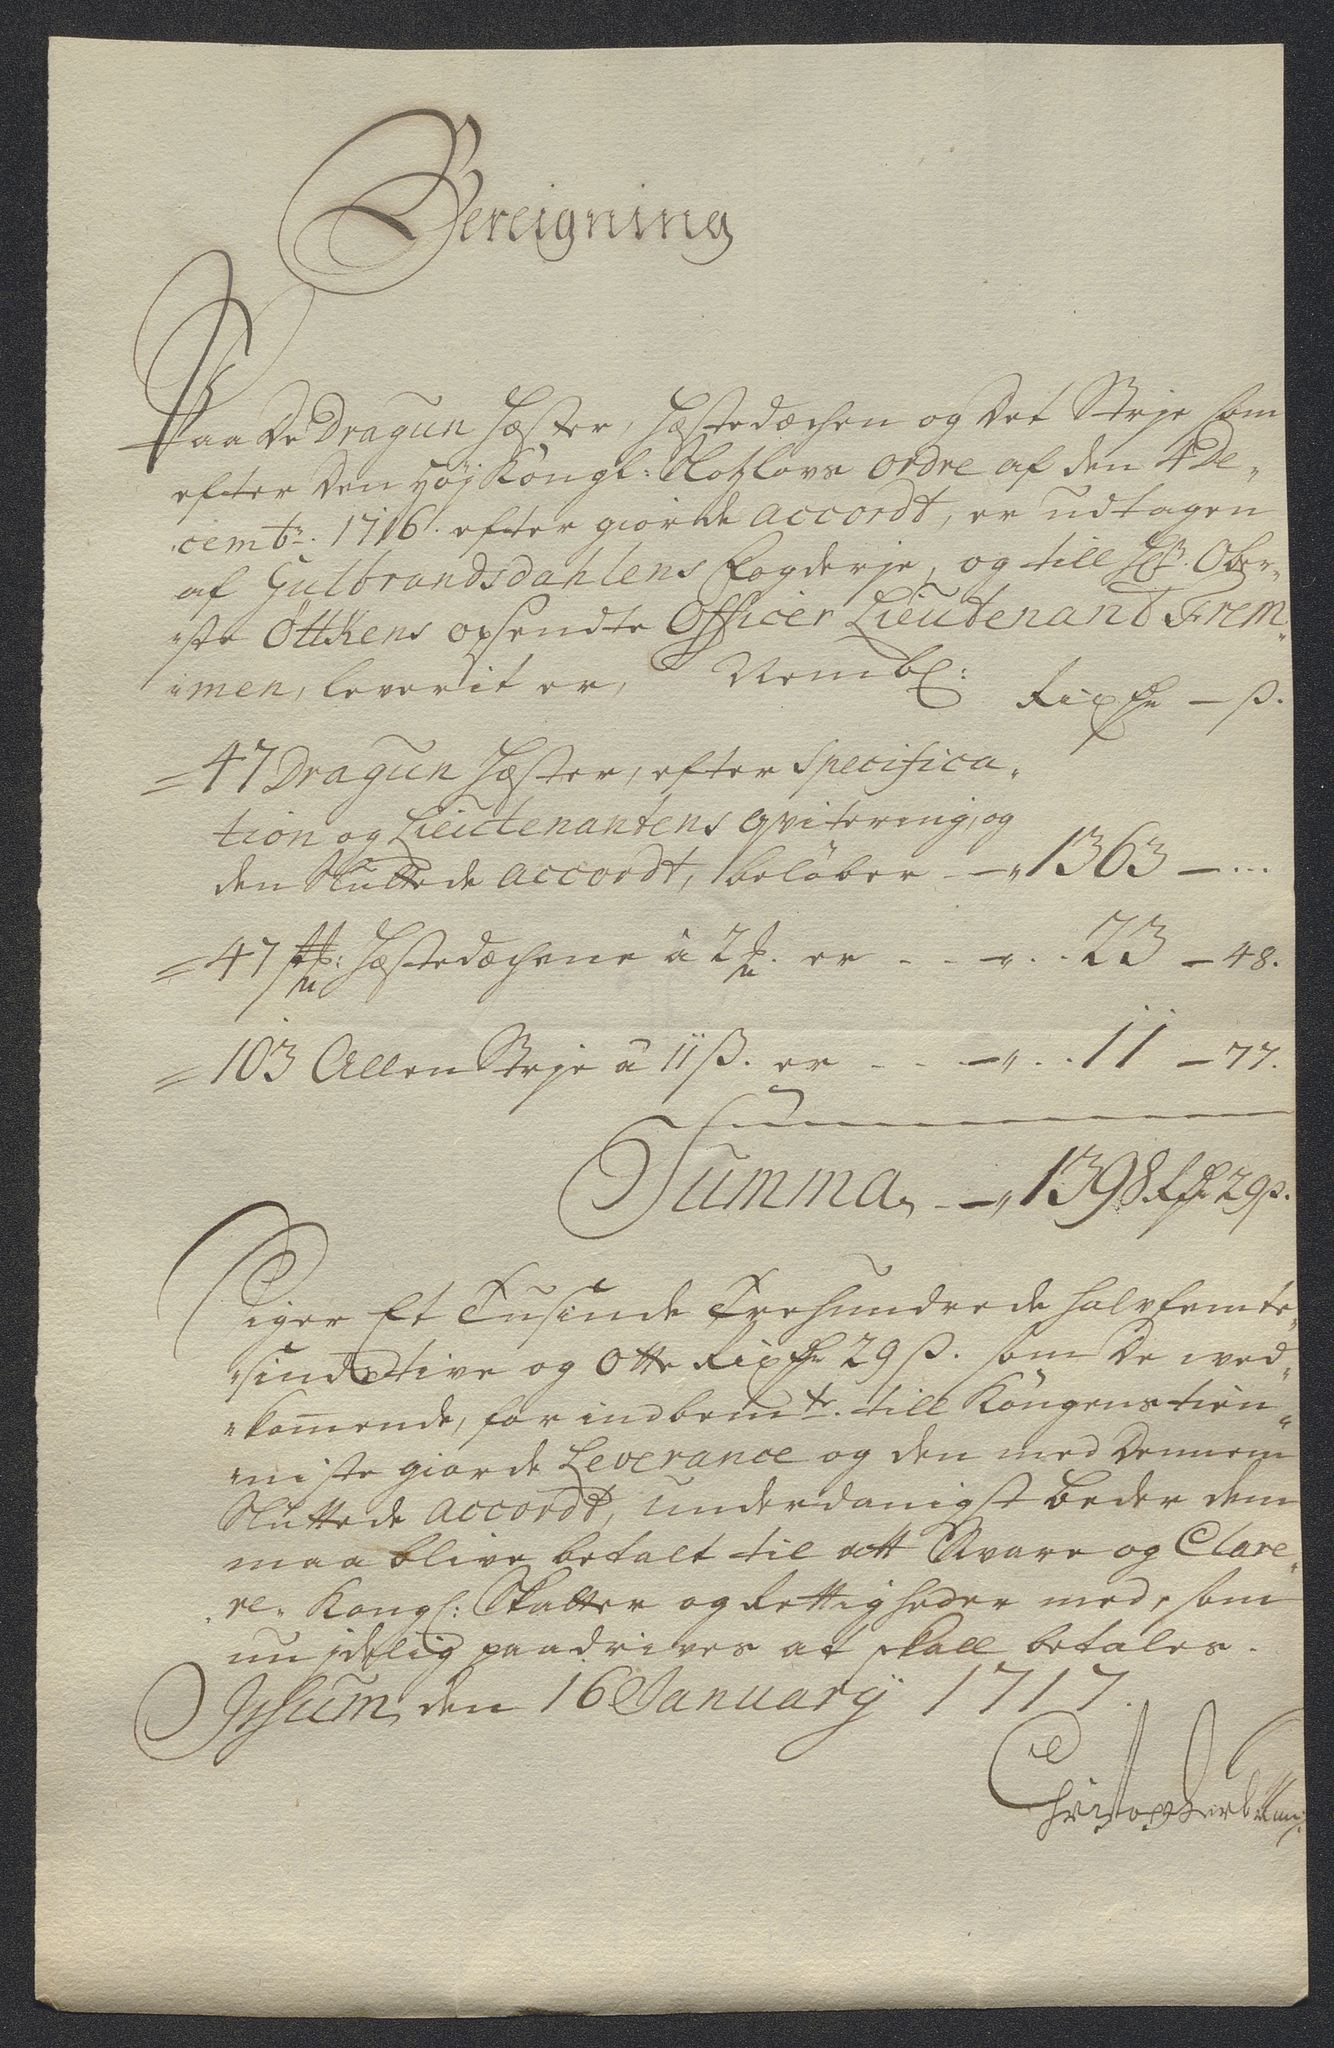 Bereigning
Paa De Dragun Hæster, Hæstedæchen og Det Strje som
efter Den Høj Kongl: Slotzlovs ordre af den 4 De„
cembr. 1716. efter giorde accordt, er udtagen
af Gulbrandsdahlens fogderje, og till Hr. Ober„
„ste Öttkens opsendte Officer Lieutenant Frem„
„men, leverit er, Nembl:
Rixdr — ß.
47 Dragun Hæster, efter Specifica„
tion og Lieutenantens qvitering, og
den Sluttede accordt, beløber — „ 1363 — ...
47 Hæstedæchene â 2 er - - - „ . . 23 — 48.
103 Allen Strje â 11 ß. er - - — „ . . 11 — 77.
Summa, - — „ 1398 Rdr 29 ß.
Siger Et Tusinde Trehundrede halvfemte„
„sindstive og Otte Rixdr 29 ß. som De ved„
„kommende, for indbemte. till Kongens tien„
„niste giorde Leverance og den med Dennem
Sluttede accordt, underdanigst beder dem
maa blive betalt til att Svare og Clare„
„re„ Kongl: Skatter og Rettigheder med, som
nu jdelig paadrives at skall betales.
Jssum, den 16 January 1717.
Christopher